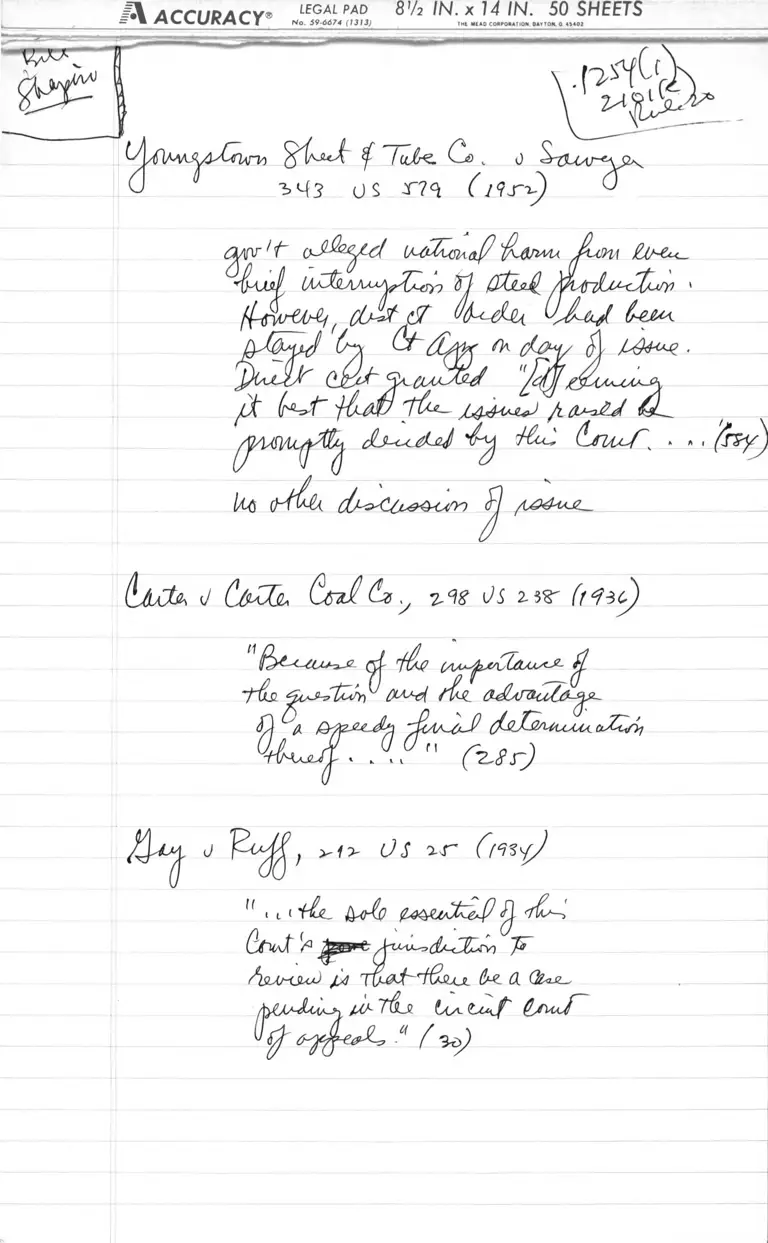 ACCURACY® LEGAL PAD 8½ IN. x 14 IN. 50 SHEETS
No. 59-6674 (1313) THE MEAD CORPORATION, DAYTON, O. 45402
Bill
Shapiro
.1254(1)
2101(e
Rule 20
Youngstown Sheet & Tube Co. v Sawyer
343 US 579 (1952)
gov't alleged national harm from even
brief interruption of steel production.
However, dist ct order had been
stayed by Ct App on day of issue.
Direct cert granted "[d]eeming
it best that the issues raised be
promptly decided by this Court. . . ." (584)
no other discussion of issue
Carter v Carter Coal Co., 298 US 238 (1936)
"Because of the importance of
the question and the advantage
of a speedy final determination
thereof . . . . ." (285)
Gay v Ruff, 292 US 25 (1934)
"...the sole essential of this
Court's jurisdiction to
review is that there be a case
pending in the circuit court
of appeals." (30)